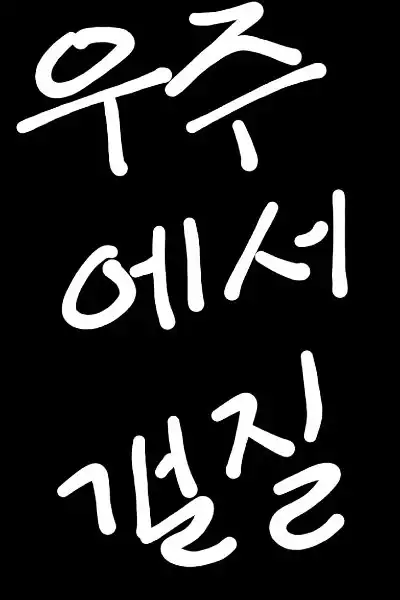 우주
에서
갤질